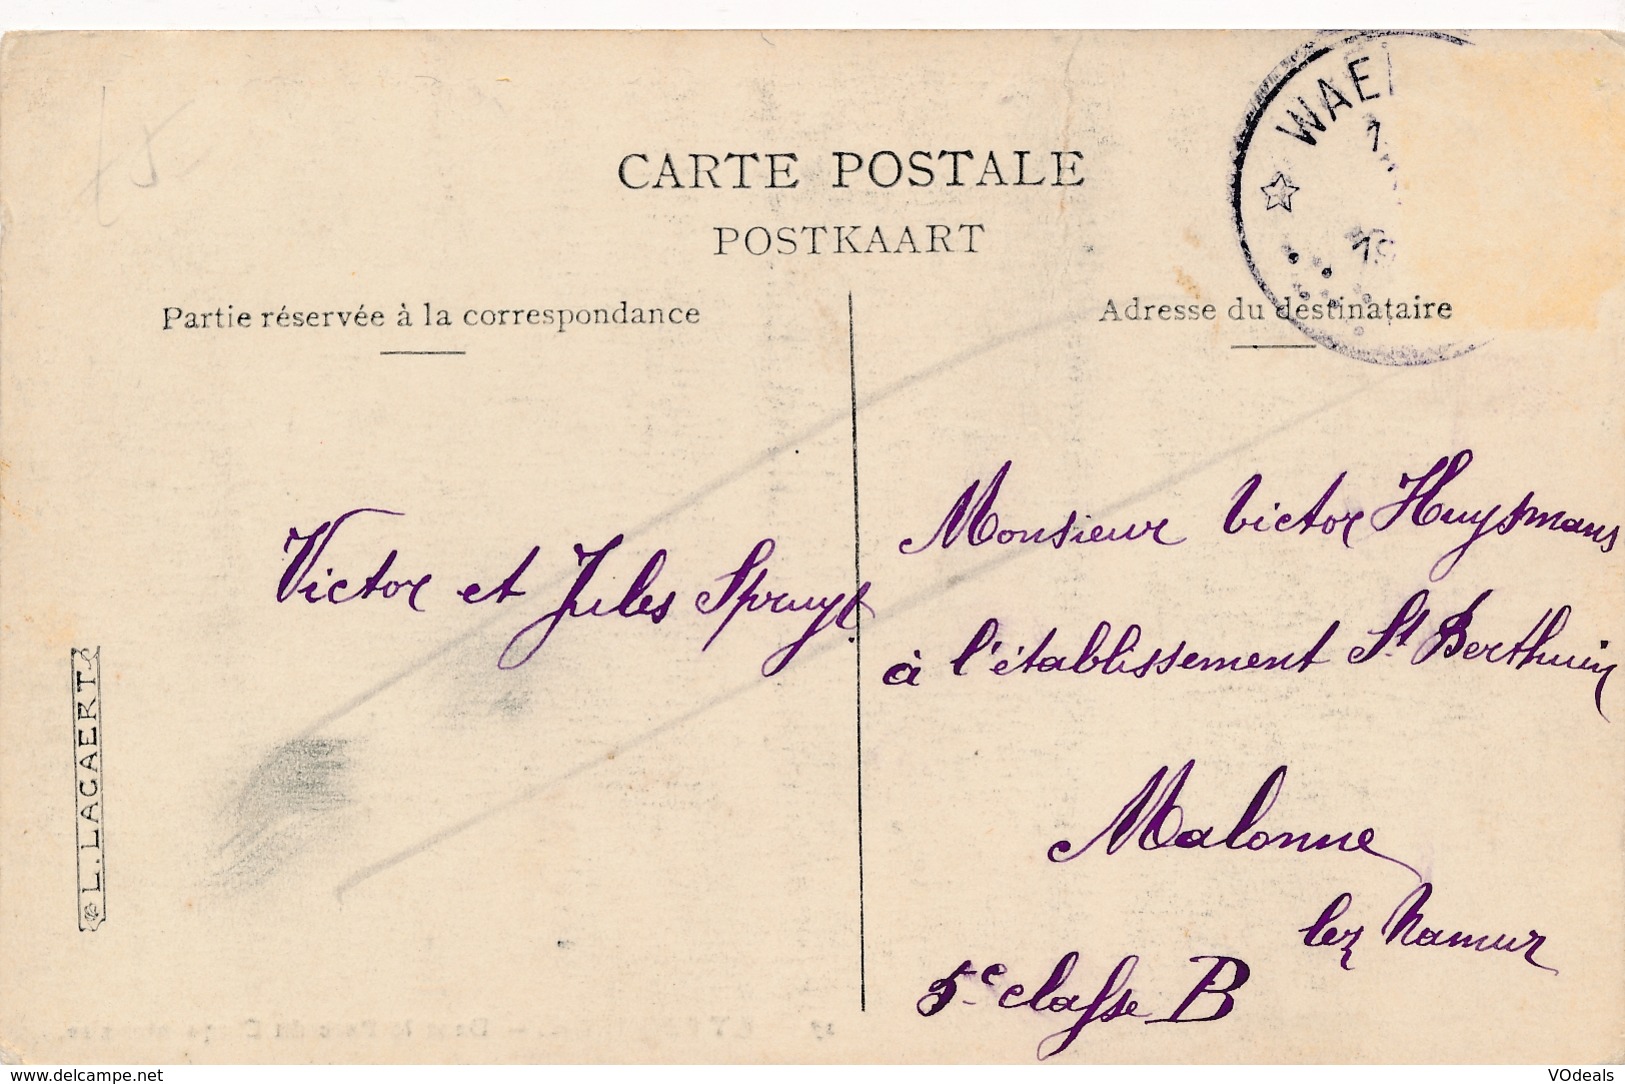 CARTE POSTALE
POSTKAART
WAE
1
19
Partie réservée à la correspondance
Adresse du destinataire
Victor et Jules Spruyt.
Monsieur Victor Huysmans
à l'établissement St Berthuin
Malonne
lez Namur
5e classe B
L. LAGAERT
75
www.delcampe.net
VOdeals